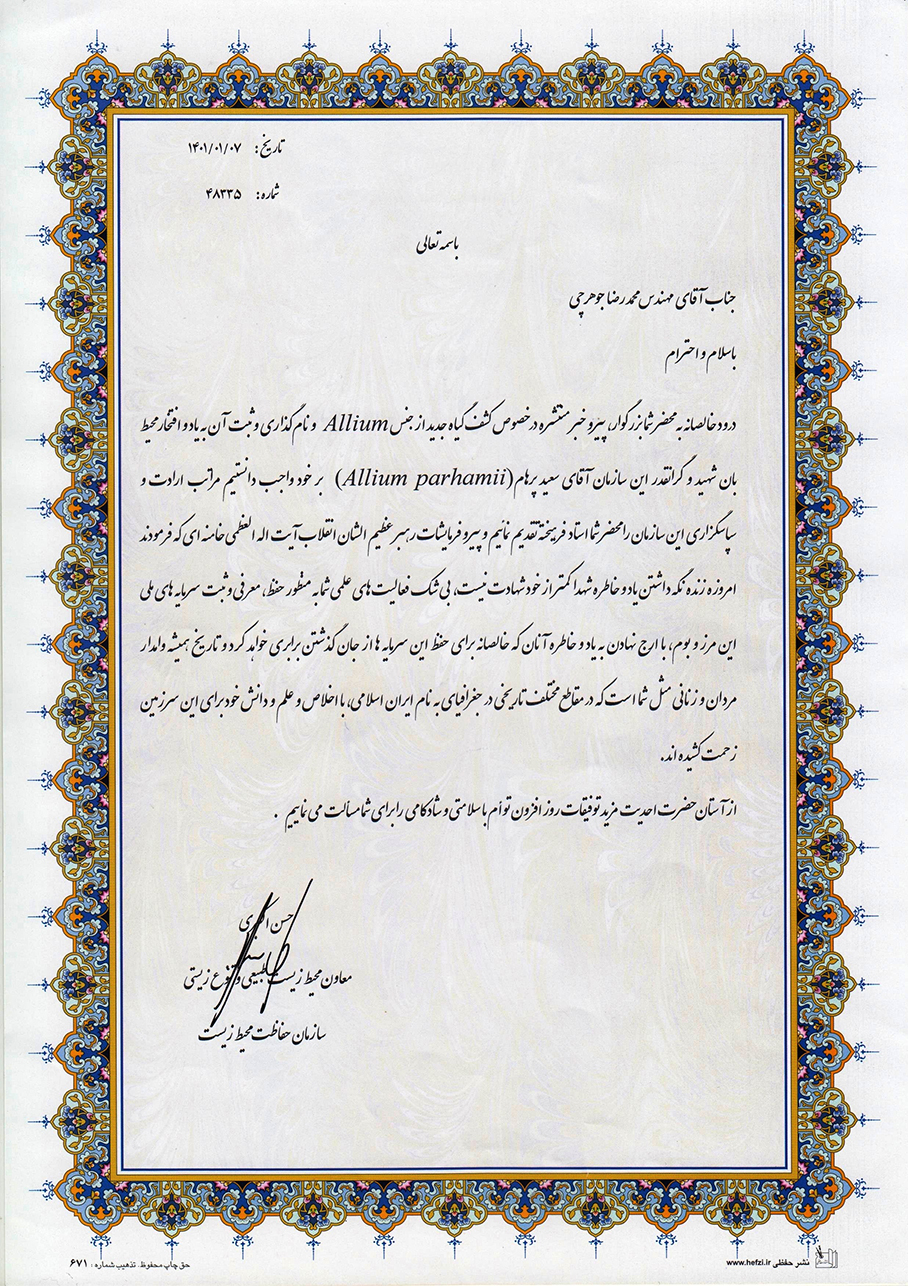 تاریخ: ۱۴۰۱/۰۱/۰۷
شماره: ۴۸۳۳۵
باسمه تعالی
جناب آقای مهندس محمدرضا جوهرچی
باسلام و احترام
درود خالصانه به محضر شما بزرگوار، پیرو خبر منتشره در خصوص کشف گیاه جدید از جنس Allium و نام گذاری و ثبت آن به یاد و افتخار محیط
بان شهید و گرانقدر این سازمان آقای سعید پرهام (Allium parhamii) بر خود واجب دانستیم مراتب ارادت و
سپاسگزاری این سازمان را محضر شما استاد فرهیخته تقدیم نمائیم و پیرو فرمایشات رهبر عظیم الشان انقلاب آیت اله العظمی خامنه ای که فرمودند
امروزه زنده نگه داشتن یاد و خاطره شهدا کمتر از خود شهادت نیست، بی شک فعالیت های علمی شما به منظور حفظ، معرفی و ثبت سرمایه های ملی
این مرز و بوم، با ارج نهادن به یاد و خاطره آنان که خالصانه برای حفظ این سرمایه ها از جان گذشتن برابری خواهد کرد و تاریخ همیشه وامدار
مردان و زنانی مثل شما است که در مقاطع مختلف تاریخی در جغرافیای به نام ایران اسلامی، با اخلاص و علم و دانش خود برای این سرزمین
زحمت کشیده اند.
از آستان حضرت احدیت مزید توفیقات روز افزون توأم با سلامتی و شادکامی را برای شما مسألت می نماییم .
حسن اکبری
معاون محیط زیست طبیعی و تنوع زیستی
سازمان حفاظت محیط زیست
نشر حفظی www.hefzi.ir
حق چاپ محفوظ. تذهیب شماره : ۶۷۱